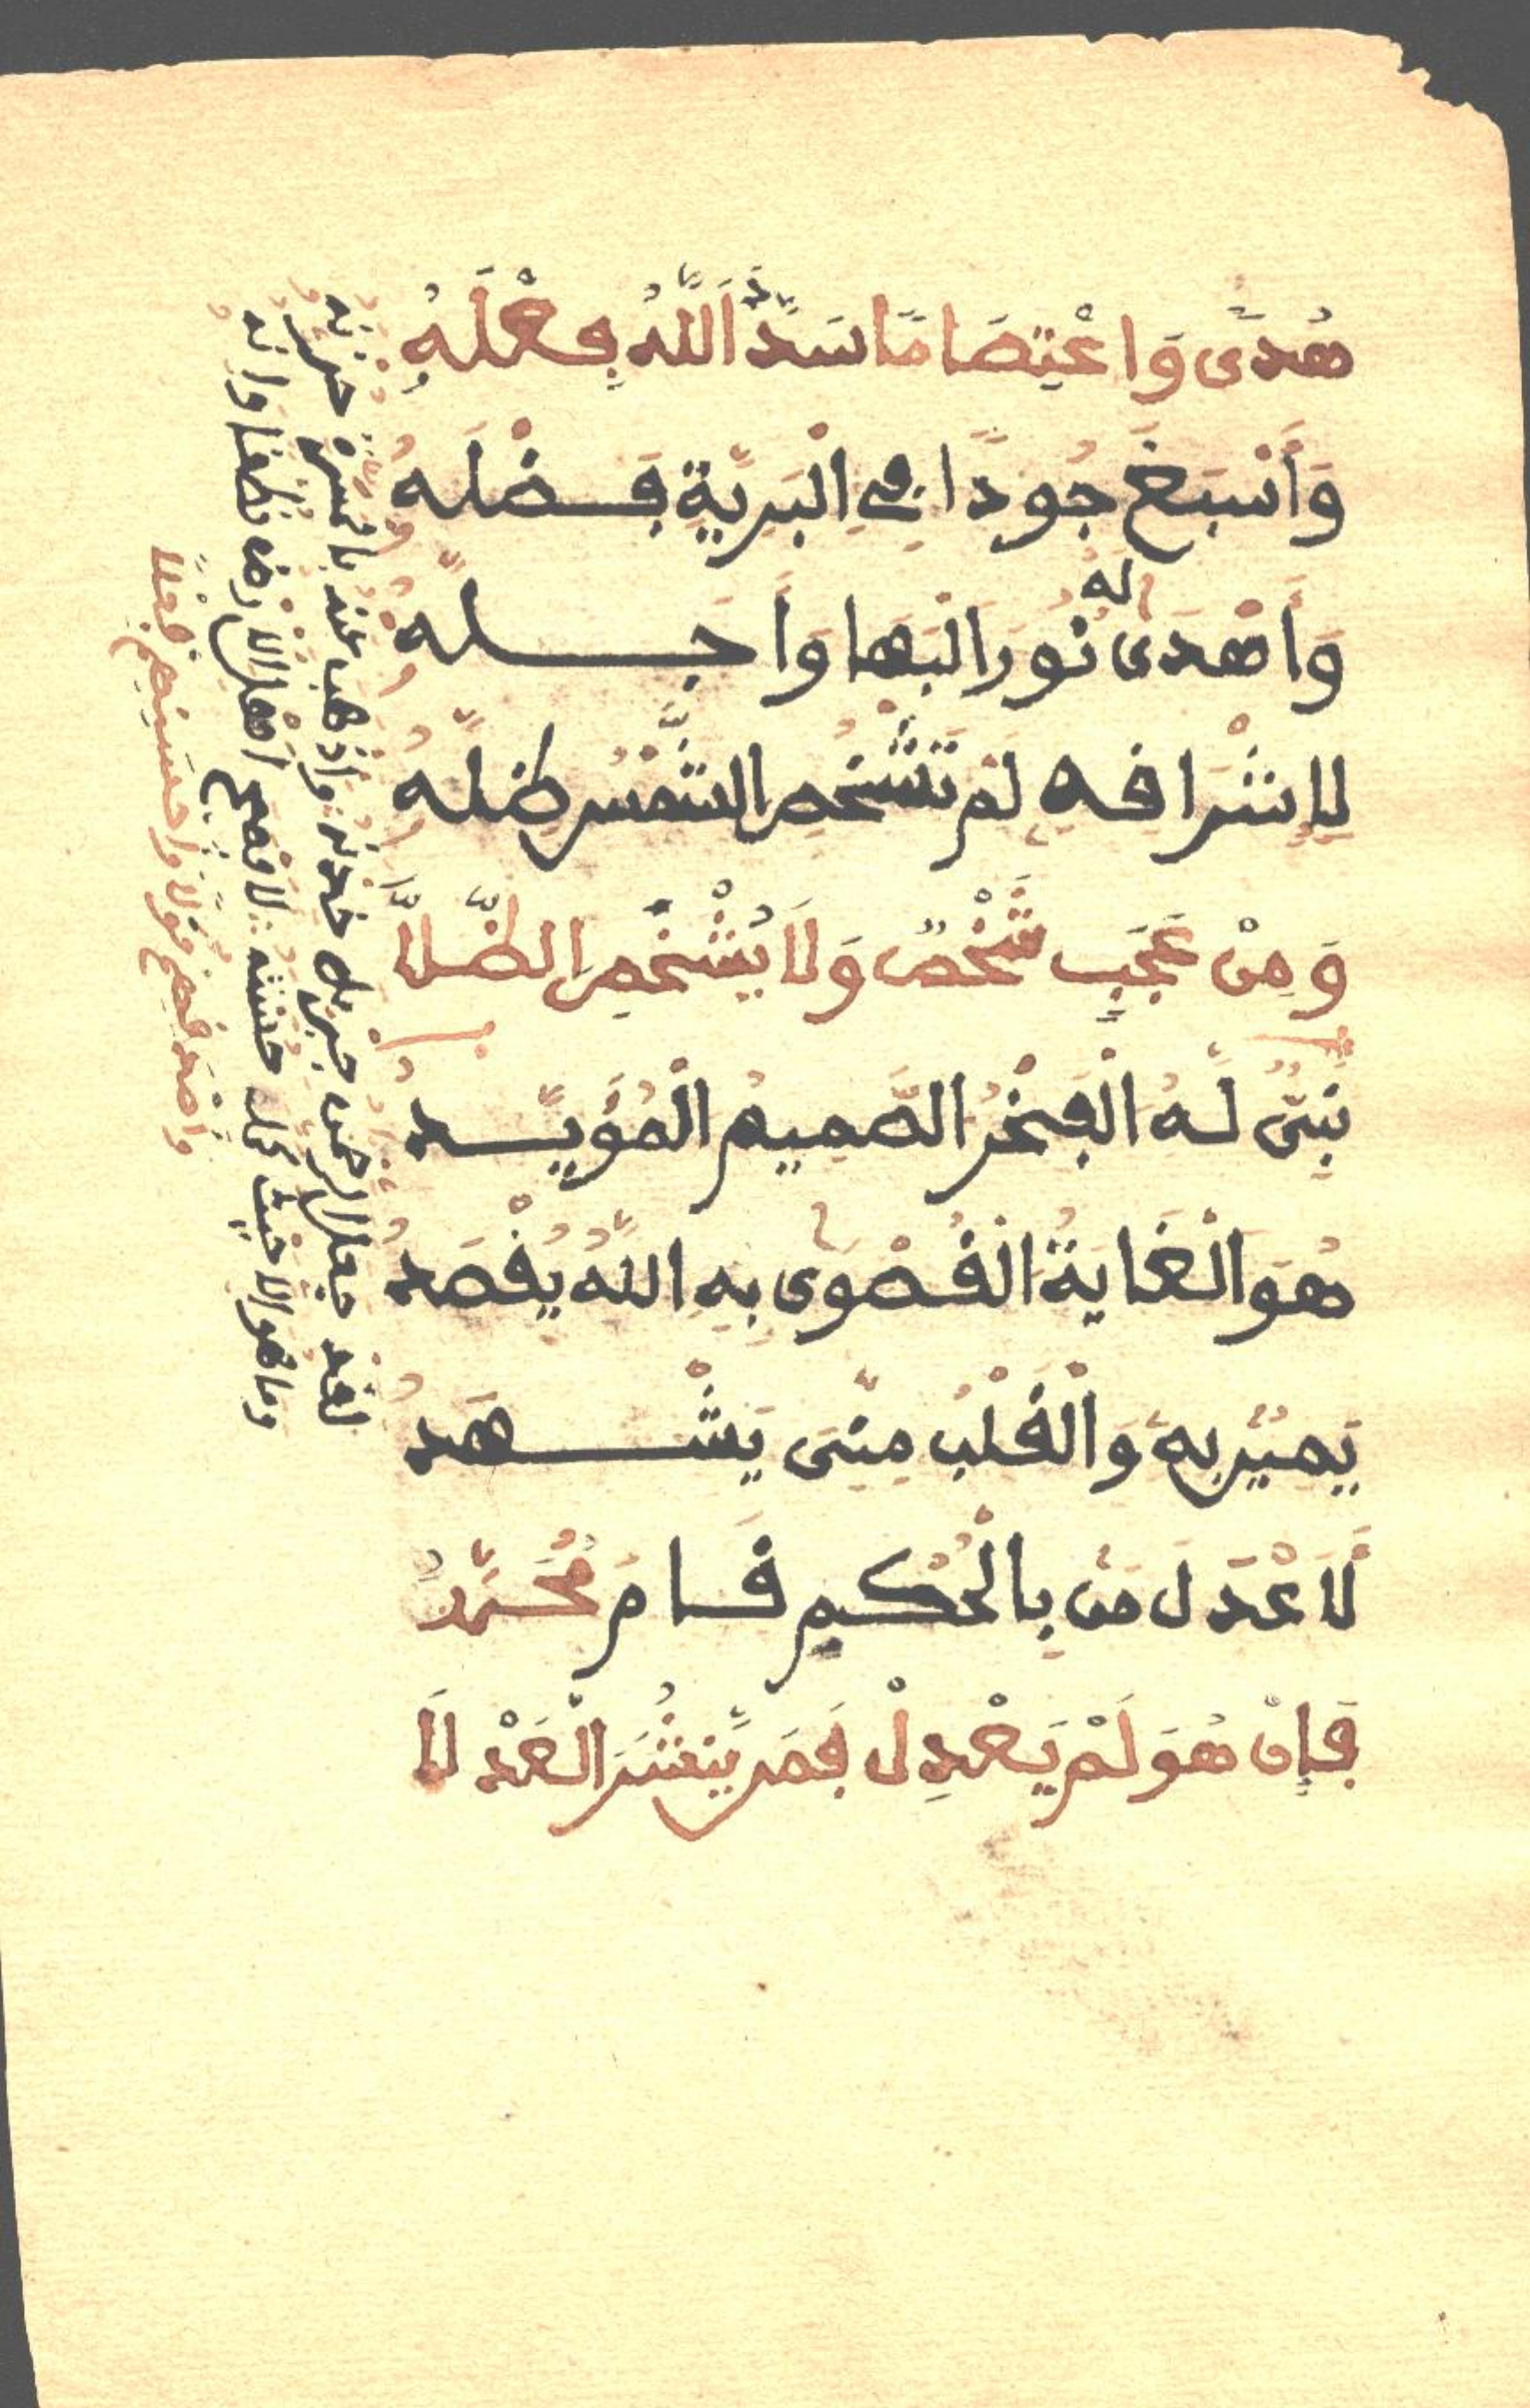 هُدًى وَاعْتِصَامًا سَدَّدَ اللَّهُ فِعْلَهُ
وَأَسْبَغَ جُودًا فِي الْبَرِيَّةِ فَضْلَهُ
وَأَهْدَى لَهُ نُورَ الْبَهَا وَأَجَلَّهُ
لِإِشْرَافِهِ لَمْ تُشْخِصِ الشَّمْسُ ظِلَّهُ
وَمِنْ عَجَبٍ شَخْصٌ وَلَا يُشْخِصُ الظِّلَّا
نَبِيٌّ لَهُ الْفَخْرُ الصَّمِيمُ الْمُؤَيَّدُ
هُوَ الْغَايَةُ الْقُصْوَى بِهِ اللَّهُ يُقْصَدُ
يَمِينٌ بِهِ وَالْقَلْبُ مِنِّي يَشْهَدُ
لَأَعْدَلُ مَنْ بِالْحُكْمِ قَامَ مُحَمَّدُ
فَإِنْ هُوَ لَمْ يَعْدِلْ فَمَنْ يَنْشُرُ الْعَدْلَا
لقد جعل الرحمن جبريل خدنه وأذهب عنه بالمسرة حزنه
وما هو إلا حيث حل حسنه لأفصح أهل الأرض نطقا وإنه
وأصدقهم قولا وأحسنهم فعلا